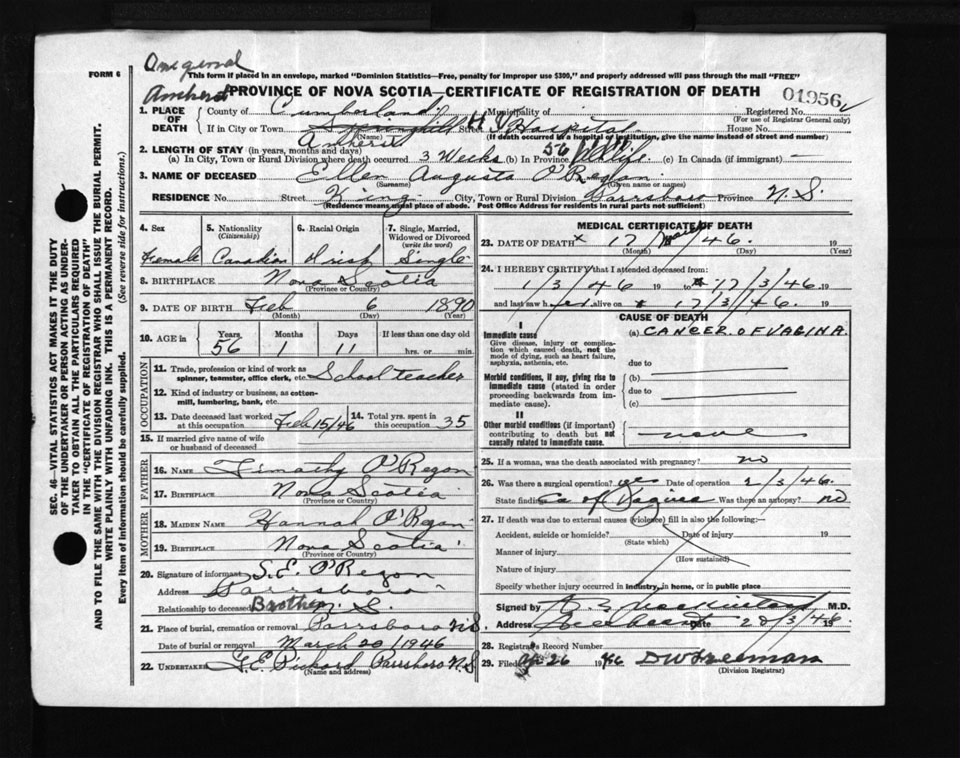 Original
FORM 6
This form if placed in an envelope, marked "Dominion Statistics—Free, penalty for improper use $300," and properly addressed will pass through the mail "FREE"
Amherst
PROVINCE OF NOVA SCOTIA—CERTIFICATE OF REGISTRATION OF DEATH
01956
1. PLACE OF DEATH
County of Cumberland Municipality of Registered No.
(For use of Registrar General only)
If in City or Town Springhill Street H S Hospital House No.
(Name) (If death occurred in a hospital or institution, give the name instead of street and number)
Amherst
2. LENGTH OF STAY (in years, months and days)
(a) In City, Town or Rural Division where death occurred 3 Weeks (b) In Province 56 (c) In Canada (if immigrant) —
3. NAME OF DECEASED Ellen Augusta O'Regan
(Surname) (Given name or names)
RESIDENCE No. Street King City, Town or Rural Division Parrsboro Province N.S.
(Residence means usual place of abode. Post Office Address for residents in rural parts not sufficient)
4. Sex Female
5. Nationality (Citizenship) Canadian
6. Racial Origin Irish
7. Single, Married, Widowed or Divorced (write the word) Single
8. BIRTHPLACE Nova Scotia
(Province or Country)
9. DATE OF BIRTH Feb 6 1890
(Month) (Day) (Year)
10. AGE in Years 56 Months 1 Days 11 If less than one day hrs. or min.
OCCUPATION
11. Trade, profession or kind of work as spinner, teamster, office clerk, etc. School teacher
12. Kind of industry or business, as cotton-mill, lumbering, bank, etc.
13. Date deceased last worked at this occupation Feb 15/46
14. Total yrs. spent in this occupation 35
15. If married give name of wife or husband of deceased
FATHER
16. NAME Timothy O'Regan
17. BIRTHPLACE Nova Scotia
(Province or Country)
MOTHER
18. MAIDEN NAME Hannah O'Regan
19. BIRTHPLACE Nova Scotia
(Province or Country)
20. Signature of informant S. E. O'Regan
Address Parrsboro
Relationship to deceased Brother N. S.
21. Place of burial, cremation or removal Parrsboro N.S.
Date of burial or removal March 20/1946
22. UNDERTAKER G. E. Pickard Parrsboro N.S
(Name and address)
MEDICAL CERTIFICATE OF DEATH
23. DATE OF DEATH x 17 Mar/46. 19
(Month) (Day) (Year)
24. I HEREBY CERTIFY that I attended deceased from:
1/3/46 19 to 17/3/46. 19
and last saw her alive on 17/3/46. 19
CAUSE OF DEATH
I
Immediate cause
Give disease, injury or complication which caused death, not the mode of dying, such as heart failure, asphyxia, asthenia, etc.
(a) CANCER OF VAGINA.
due to
Morbid conditions, if any, giving rise to immediate cause (stated in order proceeding backwards from immediate cause).
(b)
due to
(c)
II
Other morbid conditions (if important) contributing to death but not causally related to immediate cause.
none
25. If a woman, was the death associated with pregnancy? no
26. Was there a surgical operation? yes Date of operation 2/3/46.
State findings Ca of Vagina Was there an autopsy? no
27. If death was due to external causes (violence) fill in also the following:—
Accident, suicide or homicide? Date of injury 19
(State which)
Manner of injury
(How sustained)
Nature of injury
Specify whether injury occurred in industry, in home, or in public place
Signed by M.D.
Address Date 20/3/46 19
28. Registrar's Record Number
29. Filed Apr 26 1946 D W Freeman
(Division Registrar)
SEC. 46—VITAL STATISTICS ACT MAKES IT THE DUTY
OF THE UNDERTAKER OR PERSON ACTING AS UNDER-
TAKER TO OBTAIN ALL THE PARTICULARS REQUIRED
IN THE "CERTIFICATE OF REGISTRATION OF DEATH"
AND TO FILE THE SAME WITH THE DIVISION REGISTRAR WHO SHALL ISSUE THE BURIAL PERMIT.
WRITE PLAINLY WITH UNFADING INK. THIS IS A PERMANENT RECORD.
Every item of information should be carefully supplied. (See reverse side for instructions.)